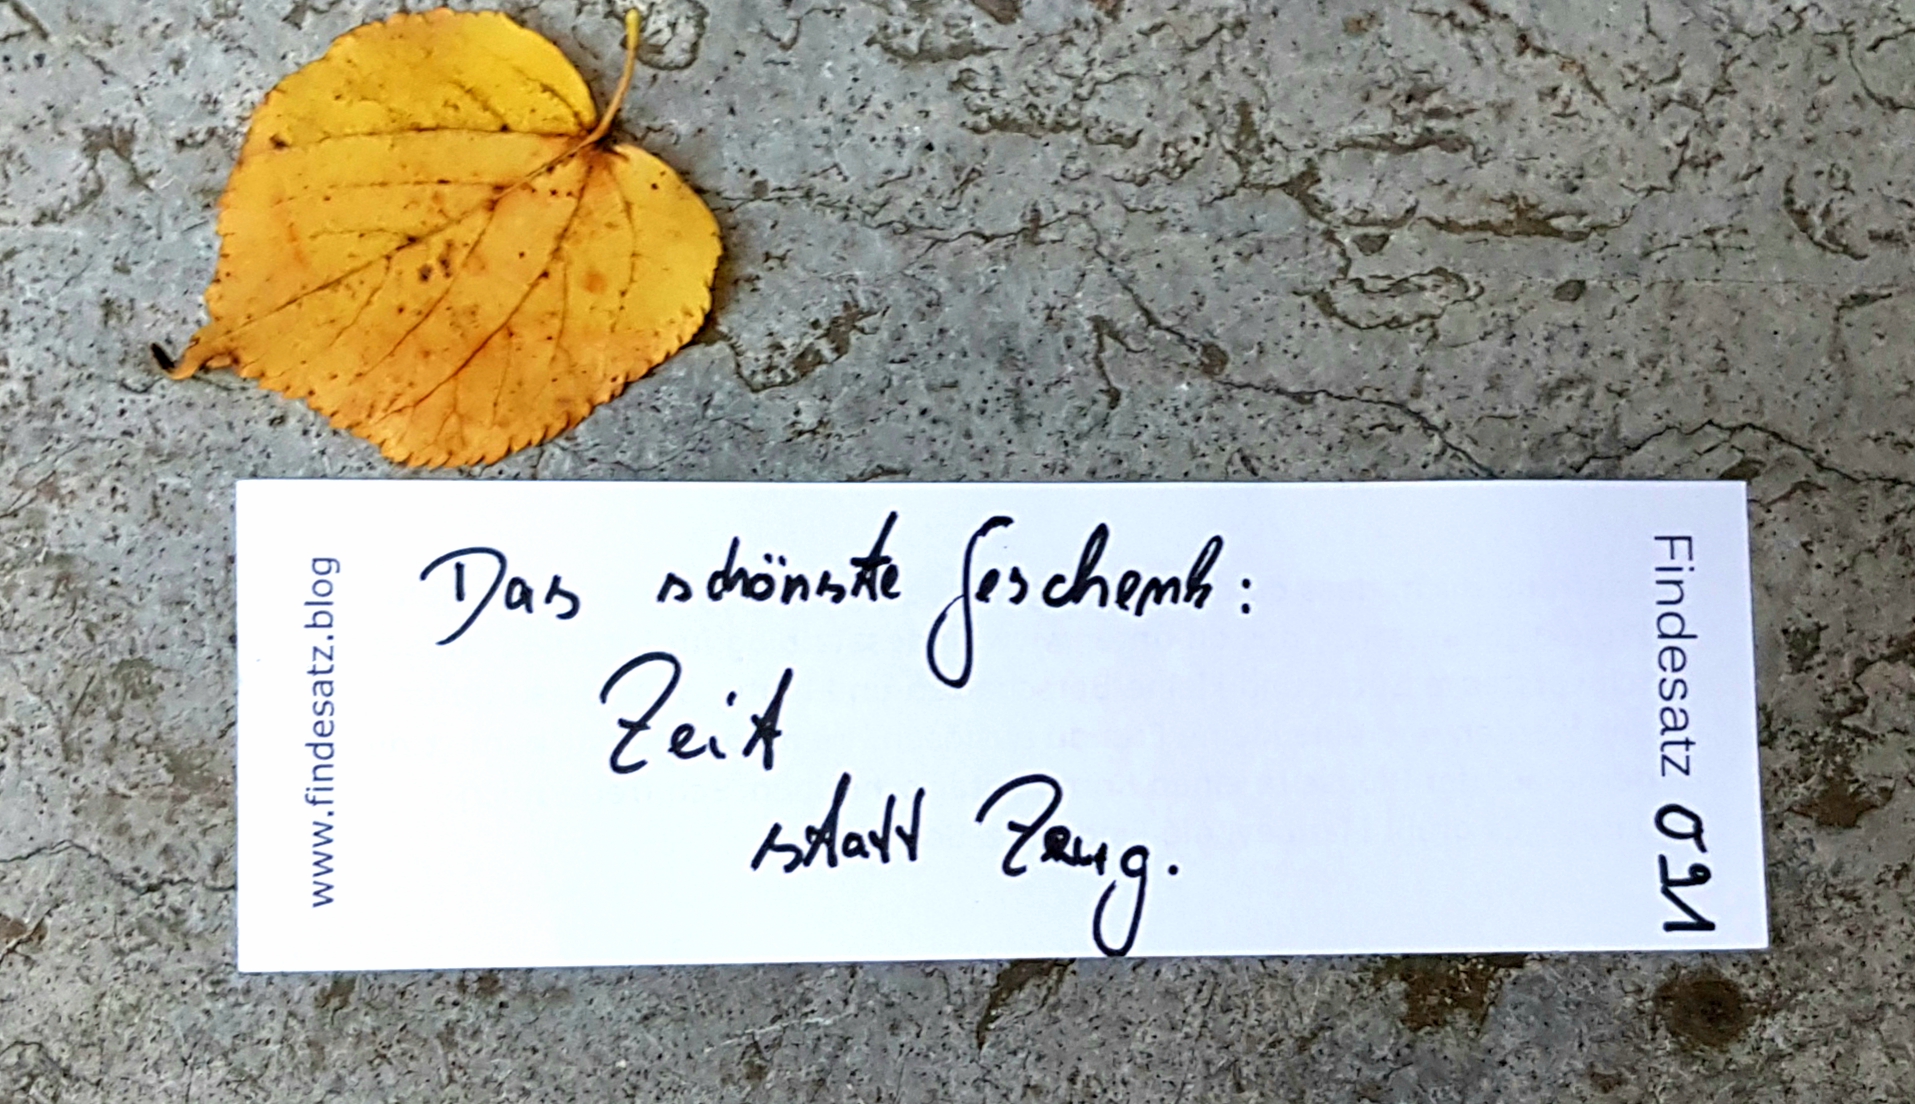 Das schönste Geschenk:
Zeit
statt Zeug.
www.findesatz.blog
Findesatz